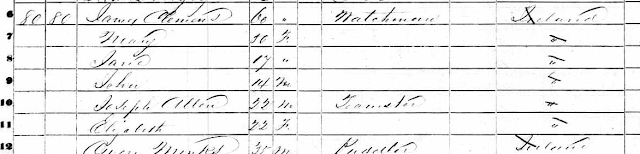 6 80 80 Jamy Clemens 60 " Watchman Ireland
7 Mary 50 F "
8 Jane 17 " "
9 John 14 M "
10 Joseph Alton 22 M Teamster "
11 Elizabeth 22 F "
12 35 M Ireland